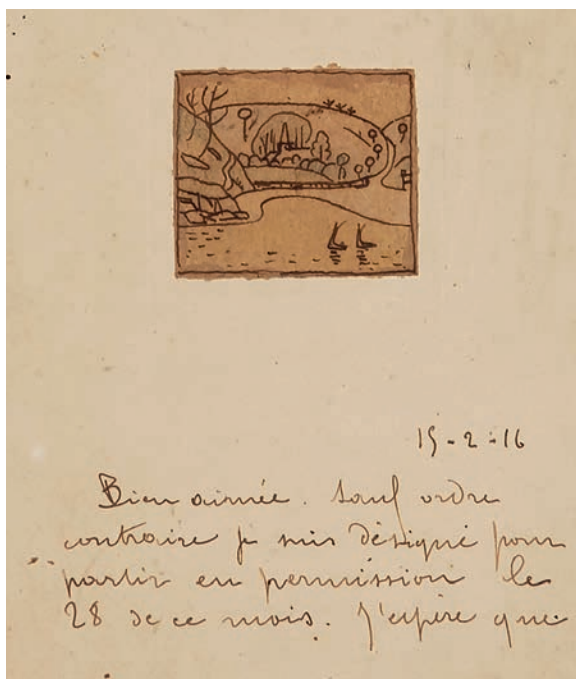 15-2-16
Bien aimée. Sauf ordre
contraire je suis désigné pour
partir en permission le
28 de ce mois. J'espère que